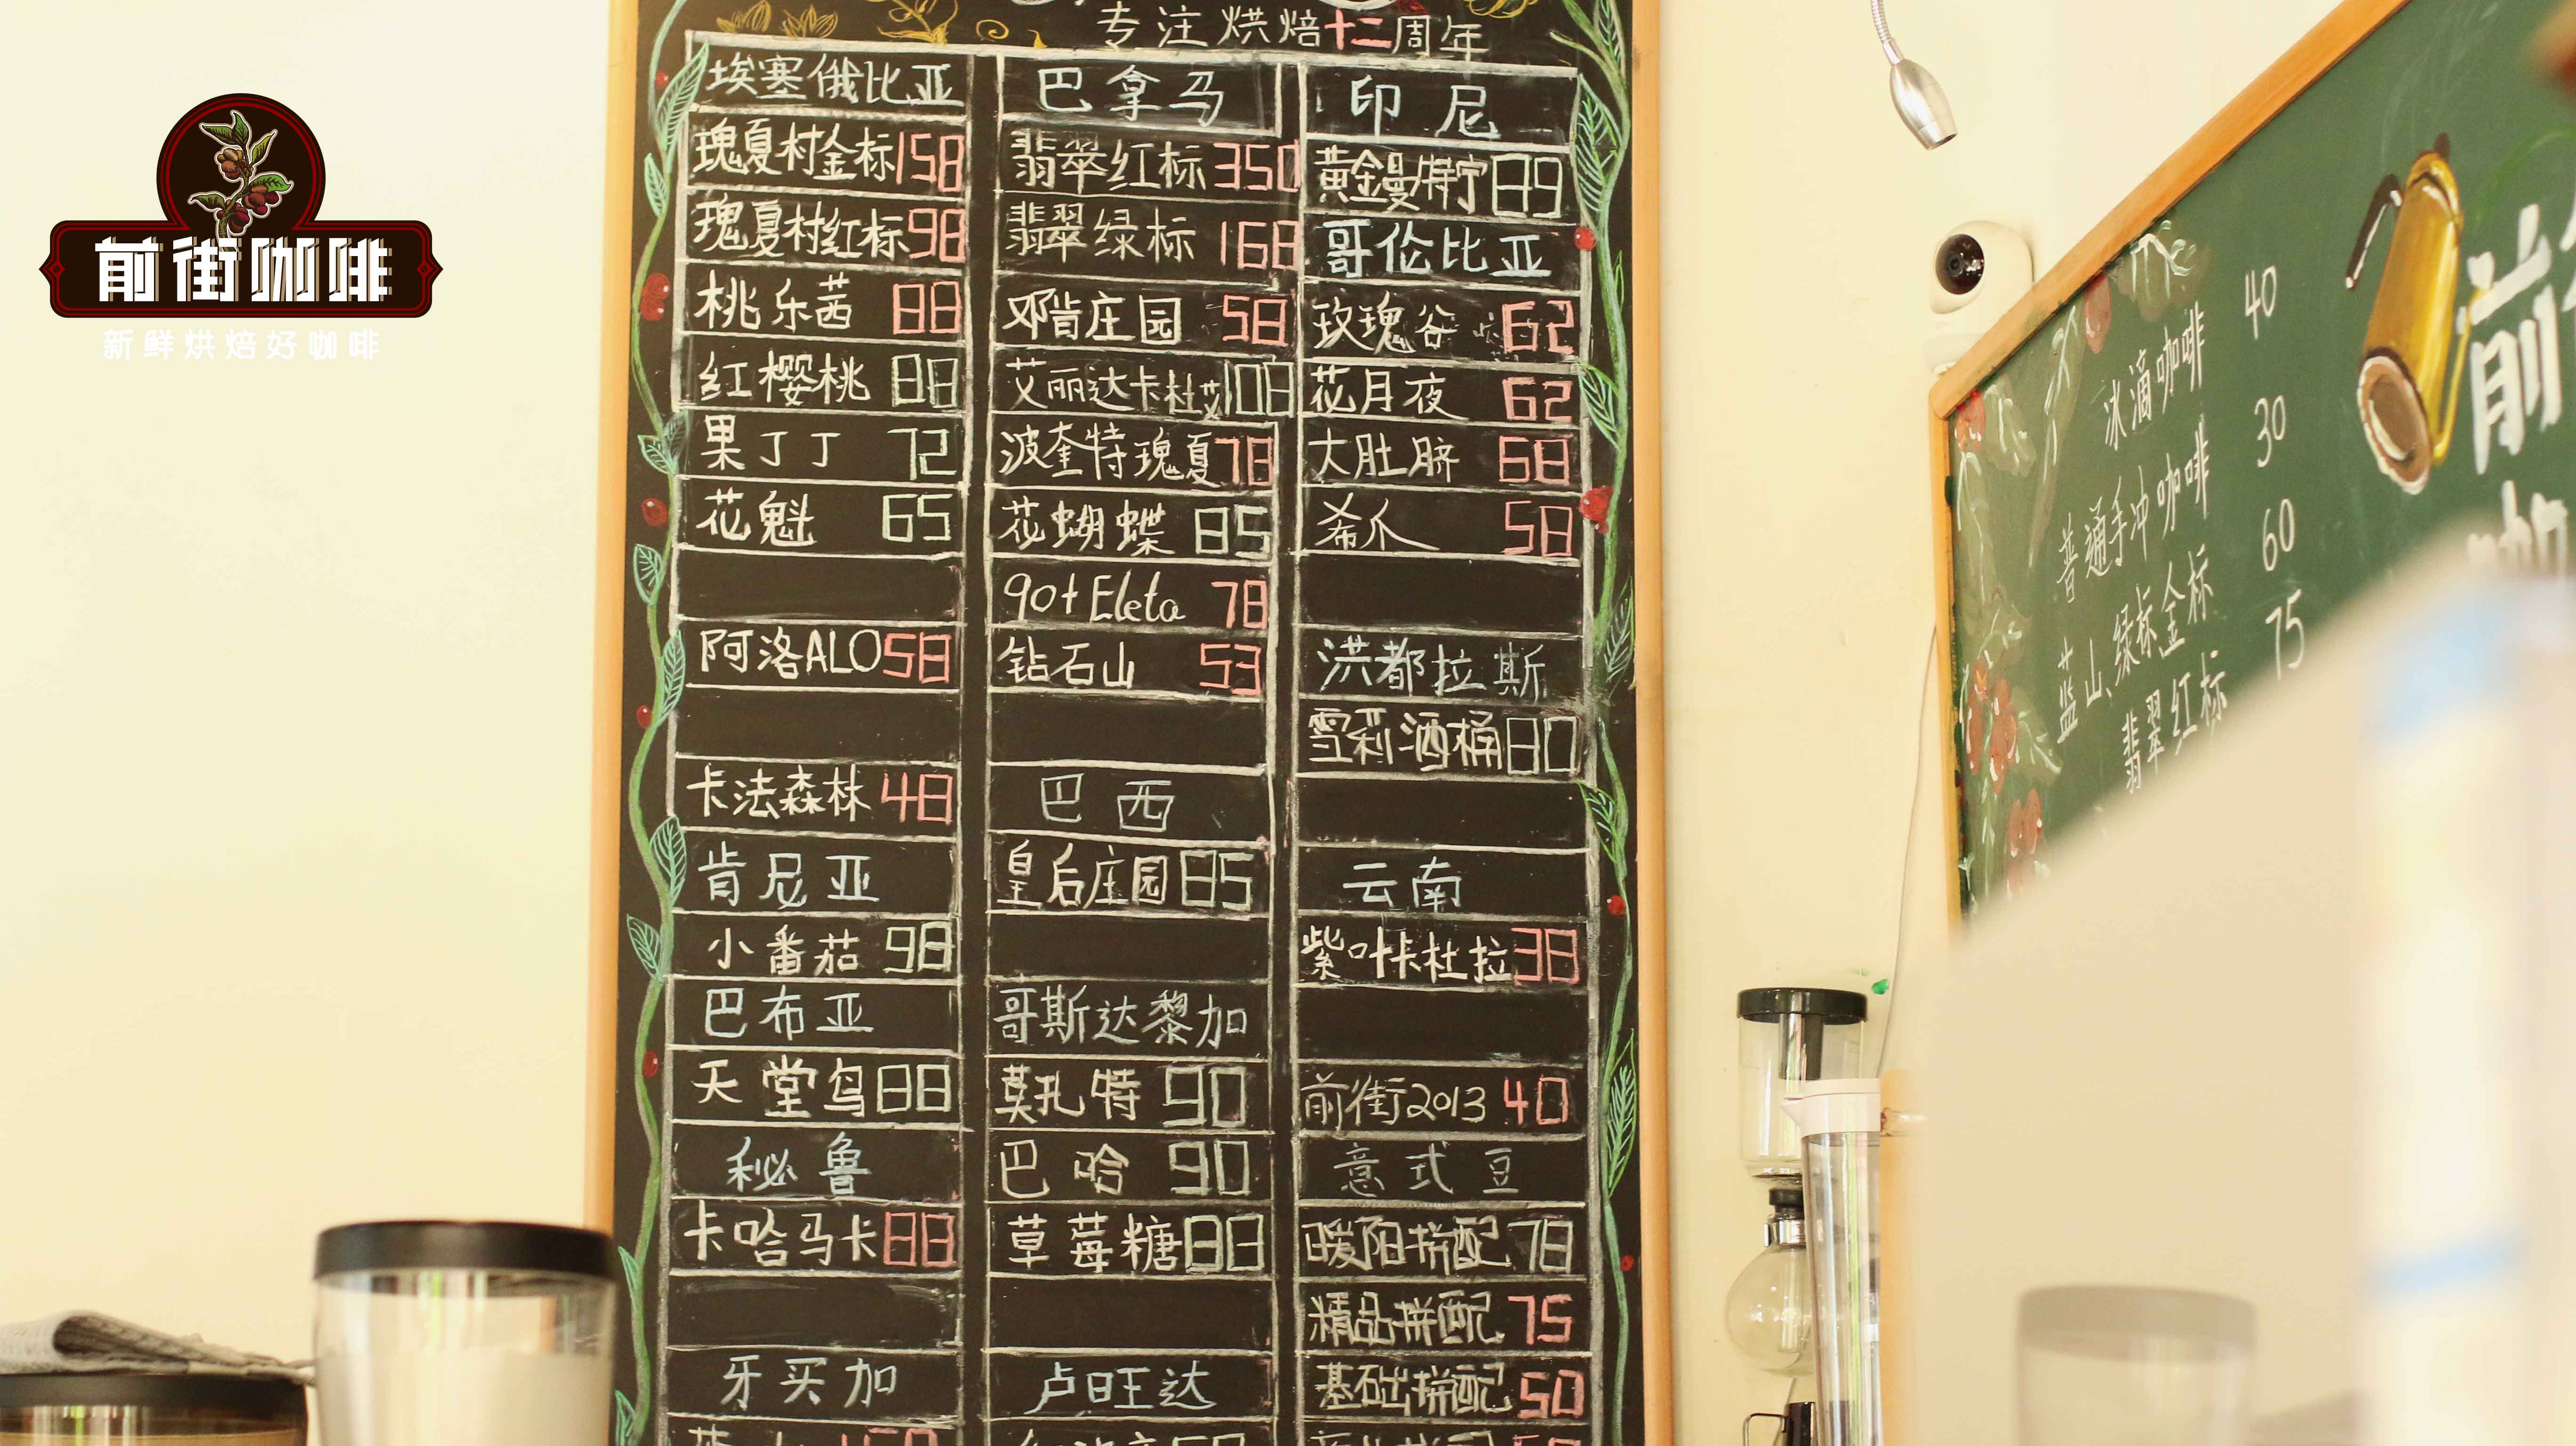 前街咖啡
新鲜烘焙好咖啡
专注烘焙十二周年
埃塞俄比亚
瑰夏村金标158
瑰夏村红标98
桃乐茜 88
红樱桃 88
果丁丁 72
花魁 65
阿洛ALO58
卡法森林48
肯尼亚
小番茄98
巴布亚
天堂鸟88
秘鲁
卡哈马卡88
牙买加
巴拿马
翡翠红标350
翡翠绿标168
邓肯庄园58
艾丽达卡杜艾108
波奎特瑰夏78
花蝴蝶85
90+Eleta 78
钻石山 53
巴西
皇后庄园85
哥斯达黎加
莫扎特 90
巴哈 90
草莓糖88
卢旺达
印尼
黄金曼特宁89
哥伦比亚
玫瑰谷 62
花月夜 62
大肚脐 68
希爪 58
洪都拉斯
雪莉酒桶80
云南
紫叶卡杜拉38
前街2013 40
意式豆
暖阳拼配78
精品拼配75
基础拼配50
冰滴咖啡 40
普通手冲咖啡 30
蓝山、绿标金标 60
翡翠红标 75
前
咖